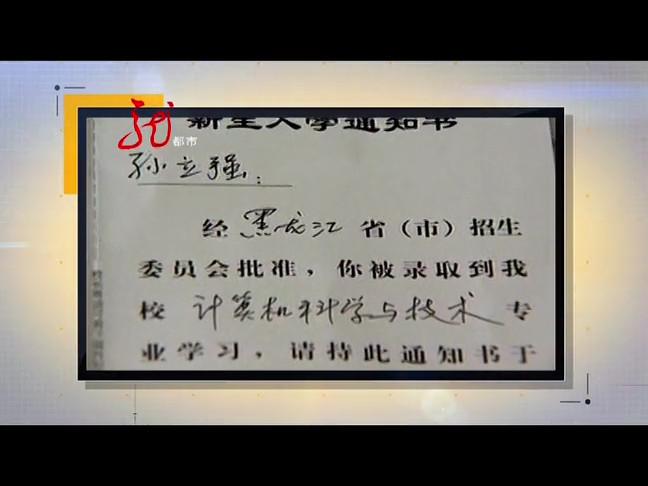 新生入学通知书
都市
孙立强:
经黑龙江省(市)招生
委员会批准,你被录取到我
校计算机科学与技术专
业学习,请持此通知书于